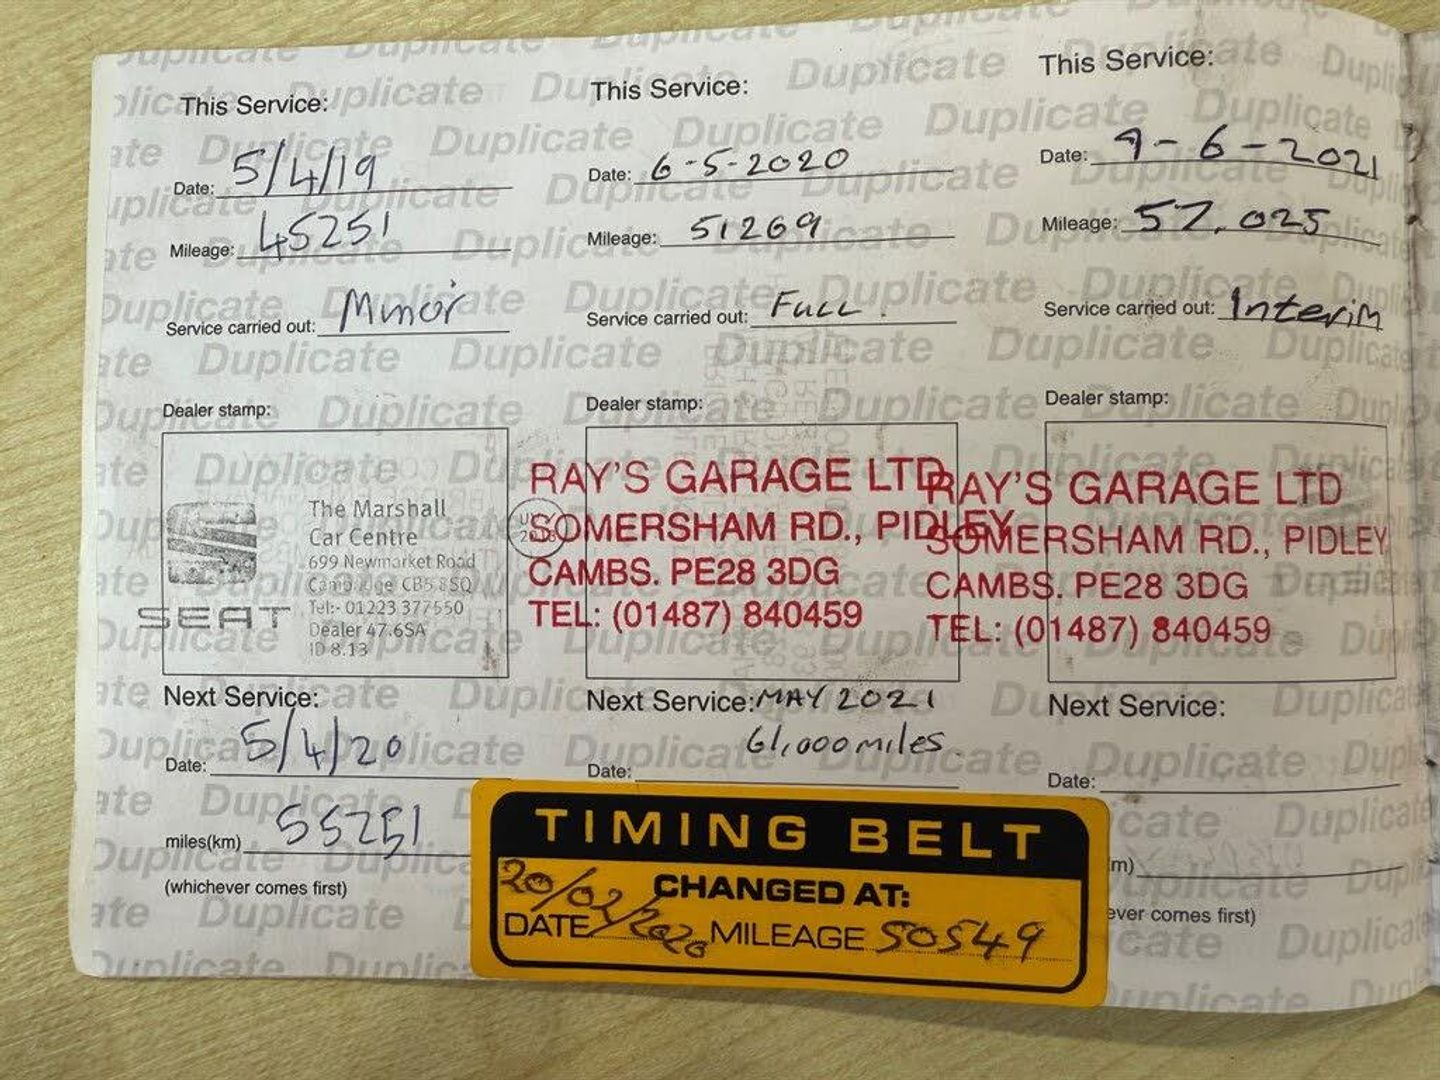 This Service:
Date: 5/4/19
Mileage: 45251
Service carried out: Minor
Dealer stamp:
The Marshall
Car Centre
699 Newmarket Road
Cambridge CB5 8SQ
Tel:- 01223 377550
Dealer 47.6SA
ID 8.13
SEAT
Next Service:
Date: 5/4/20
miles(km) 55251
(whichever comes first)
This Service:
Date: 6-5-2020
Mileage: 51269
Service carried out: FULL.
Dealer stamp:
RAY'S GARAGE LTD
SOMERSHAM RD., PIDLEY
CAMBS. PE28 3DG
TEL: (01487) 840459
Next Service: MAY 2021
61,000 miles.
Date:
TIMING BELT
CHANGED AT:
DATE 20/02/2020 MILEAGE 50549
This Service:
Date: 9-6-2021
Mileage: 57.025
Service carried out: Interim
Dealer stamp:
RAY'S GARAGE LTD
SOMERSHAM RD., PIDLEY
CAMBS. PE28 3DG
TEL: (01487) 840459
Next Service:
Date:
m)
ever comes first)
Duplicate